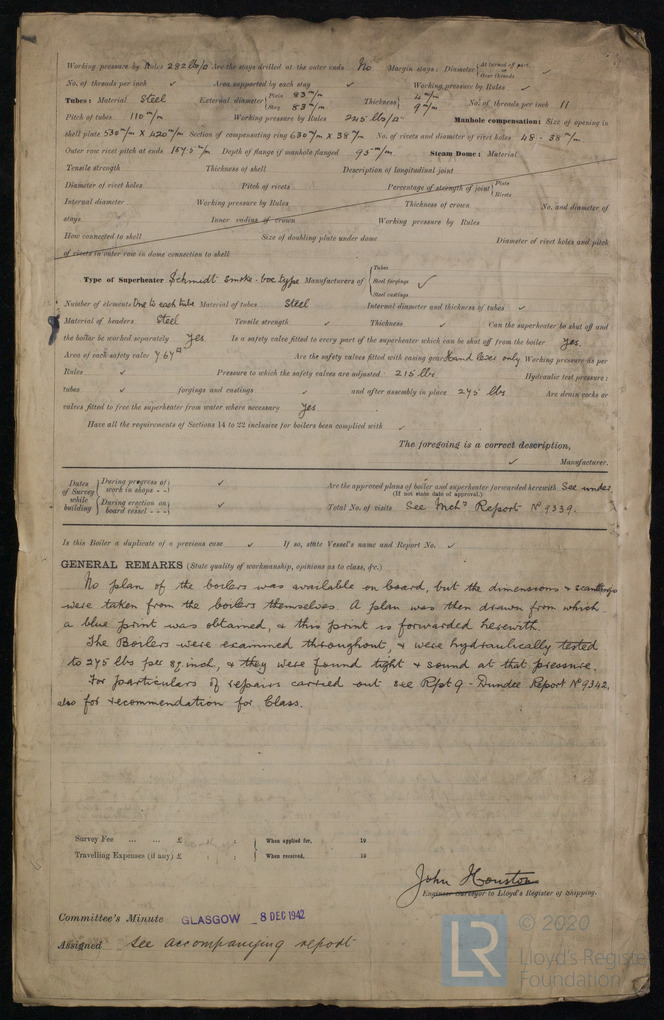 Working pressure by Rules 282 lbs/□" Are the stays drilled at the outer ends No Margin stays: Diameter { At turned off part, or Over threads ✓
No. of threads per inch ✓ Area supported by each stay ✓ Working pressure by Rules ✓
Tubes: Material Steel External diameter { Plain 83 m/m Stay 83 m/m Thickness { 4 m/m 9 m/m No. of threads per inch 11
Pitch of tubes 110 m/m Working pressure by Rules 245 lbs/□" Manhole compensation: Size of opening in
shell plate 530 m/m X 420 m/m Section of compensating ring 630 m/m X 38 m/m No. of rivets and diameter of rivet holes 48 - 38 m/m
Outer row rivet pitch at ends 157.5 m/m Depth of flange if manhole flanged 95 m/m Steam Dome: Material
Tensile strength Thickness of shell Description of longitudinal joint
Diameter of rivet holes Pitch of rivets Percentage of strength of joint { Plate Rivets
Internal diameter Working pressure by Rules Thickness of crown No. and diameter of
stays Inner radius of crown Working pressure by Rules
How connected to shell Size of doubling plate under dome Diameter of rivet holes and pitch
of rivets in outer row in dome connection to shell
Type of Superheater Schmidt smoke-box type Manufacturers of { Tubes Steel forgings Steel castings ✓
Number of elements One to each tube Material of tubes Steel Internal diameter and thickness of tubes ✓
Material of headers Steel Tensile strength ✓ Thickness ✓ Can the superheater be shut off and
the boiler be worked separately Yes Is a safety valve fitted to every part of the superheater which can be shut off from the boiler Yes.
Area of each safety valve 7.67 □" Are the safety valves fitted with easing gear Hand lever only Working pressure as per
Rules ✓ Pressure to which the safety valves are adjusted 215 lbs. Hydraulic test pressure:
tubes ✓ forgings and castings ✓ and after assembly in place 275 lbs Are drain cocks or
valves fitted to free the superheater from water where necessary Yes
Have all the requirements of Sections 14 to 22 inclusive for boilers been complied with ✓
The foregoing is a correct description,
✓ Manufacturer.
Dates of Survey while building { During progress of work in shops - - } ✓ Are the approved plans of boiler and superheater forwarded herewith See under
(If not state date of approval.)
{ During erection on board vessel - - - } ✓ Total No. of visits See Mchy Report No 9339.
Is this Boiler a duplicate of a previous case ✓ If so, state Vessel's name and Report No. ✓
GENERAL REMARKS (State quality of workmanship, opinions as to class, &c.)
No plan of the boilers was available on board, but the dimensions & scantlings
were taken from the boilers themselves. A plan was then drawn from which
a blue print was obtained, & this print is forwarded herewith.
The Boilers were examined throughout, & were hydraulically tested
to 275 lbs per sq inch, & they were found tight & sound at that pressure.
For particulars of repairs carried out see Rpt 9 - Dundee Report No 9342,
also for recommendation for Class.
Survey Fee ... ... £ : : { When applied for, 19
Travelling Expenses (if any) £ : : { When received, 19
John Houston
Engineer Surveyor to Lloyd's Register of Shipping.
Committee's Minute GLASGOW 8 DEC 1942
Assigned See accompanying report
LR © 2020
Lloyd's Register
Foundation